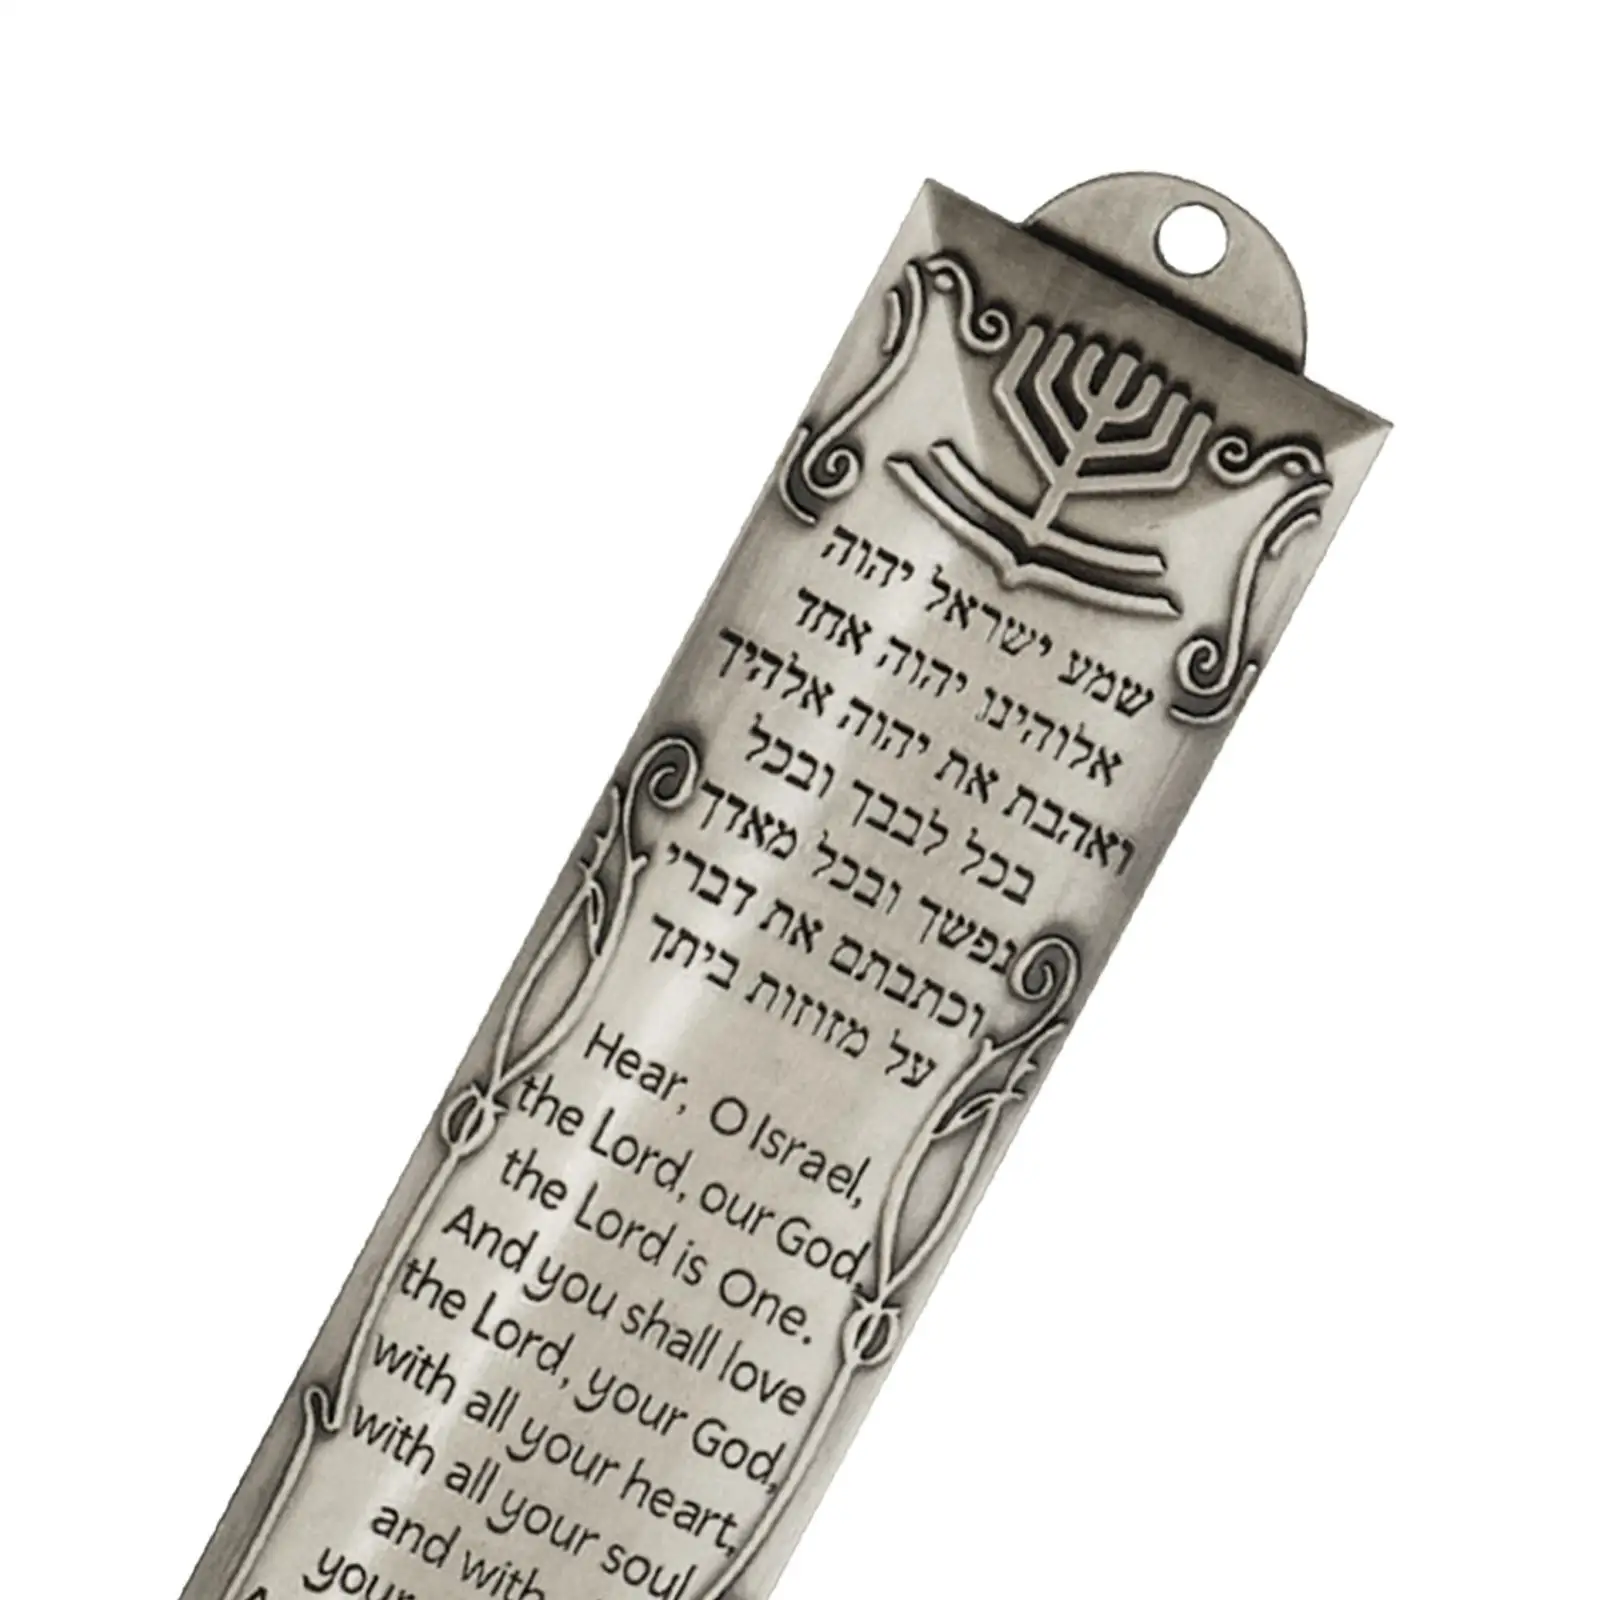 שמע ישראל יהוה
אלוהינו יהוה אחד
ואהבת את יהוה אלהיך
בכל לבבך ובכל
נפשך ובכל מאדך
וכתבתם את דברי
על מזוזות ביתך
Hear, O Israel,
the Lord, our God,
the Lord is One.
And you shall love
the Lord, your God,
with all your heart,
with all your soul
and with
your